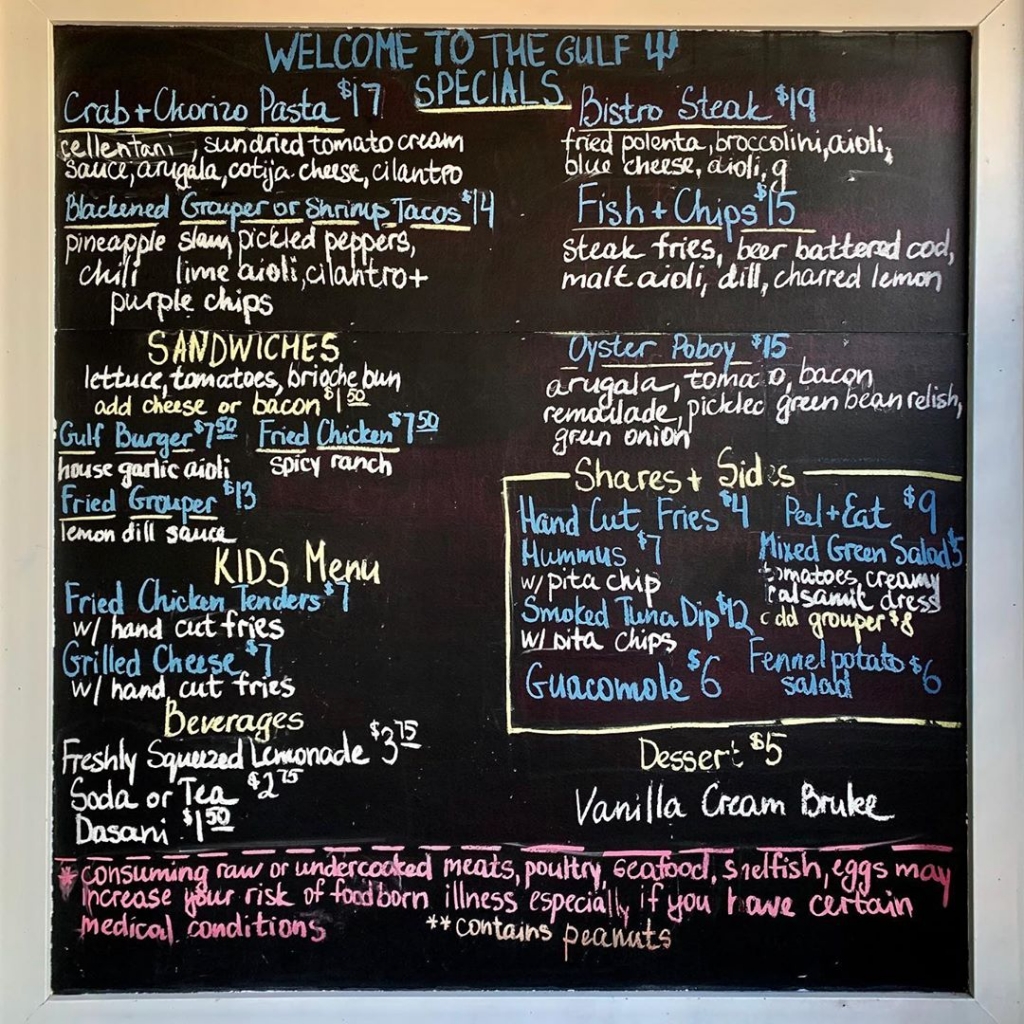 WELCOME TO THE GULF
SPECIALS
Crab + Chorizo Pasta $17
cellentani, sundried tomato cream
sauce, arugala, cotija cheese, cilantro
Blackened Grouper or Shrimp Tacos $14
pineapple slaw, pickled peppers,
chili lime aioli, cilantro +
purple chips
Bistro Steak $19
fried polenta, broccolini, aioli,
blue cheese, aioli, g
Fish + Chips $15
steak fries, beer battered cod,
malt aioli, dill, charred lemon
Oyster Poboy $15
arugala, tomato, bacon
remoulade, pickled green bean relish,
green onion
SANDWICHES
lettuce, tomatoes, brioche bun
add cheese or bacon $1.50
Gulf Burger $7.50 Fried Chicken $7.50
house garlic aioli spicy ranch
Fried Grouper $13
lemon dill sauce
KIDS Menu
Fried Chicken Tenders $7
w/ hand cut fries
Grilled Cheese $7
w/ hand cut fries
Beverages
Freshly Squeezed Lemonade $3.75
Soda or Tea $2.75
Dasani $1.50
Shares + Sides
Hand Cut Fries $4
Hummus $7
w/ pita chip
Smoked Tuna Dip $12
w/ pita chips
Guacomole $6
Peel + Eat $9
Mixed Green Salad $5
tomatoes, creamy
balsamic dress
add grouper $8
Fennel potato $6
salad
Dessert $5
Vanilla Cream Brulee
* consuming raw or undercooked meats, poultry, seafood, shelfish, eggs may
increase your risk of foodborn illness especially if you have certain
medical conditions **contains peanuts